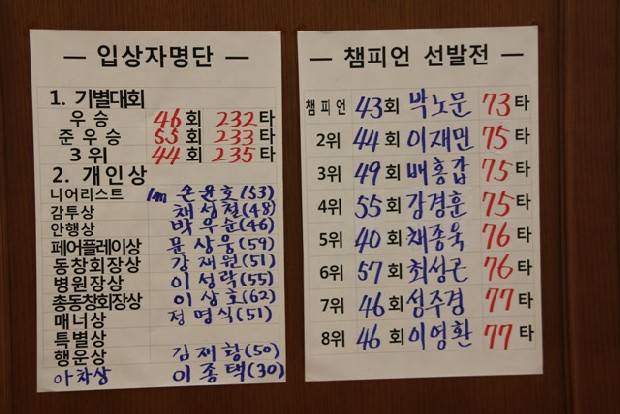 — 입상자명단 —
1. 기별대회
우 승 46회 232타
준 우 승 55회 233타
3 위 44회 235타
2. 개인상
니어리스트 1m 손윤호(53)
감투상 채성철(48)
안행상 박우순(46)
페어플레이상 문상웅(59)
동창회장상 강재원(51)
병원장상 이성락(55)
총동창회장상 이상호(62)
매너상 정명식(51)
특별상
행운상 김재황(50)
아차상 이종택(30)
— 챔피언 선발전 —
챔피언 43회 박노문 73타
2위 44회 이재민 75타
3위 49회 배홍갑 75타
4위 55회 강경훈 75타
5위 40회 채종욱 76타
6위 57회 최성근 76타
7위 46회 성주경 77타
8위 46회 이영환 77타